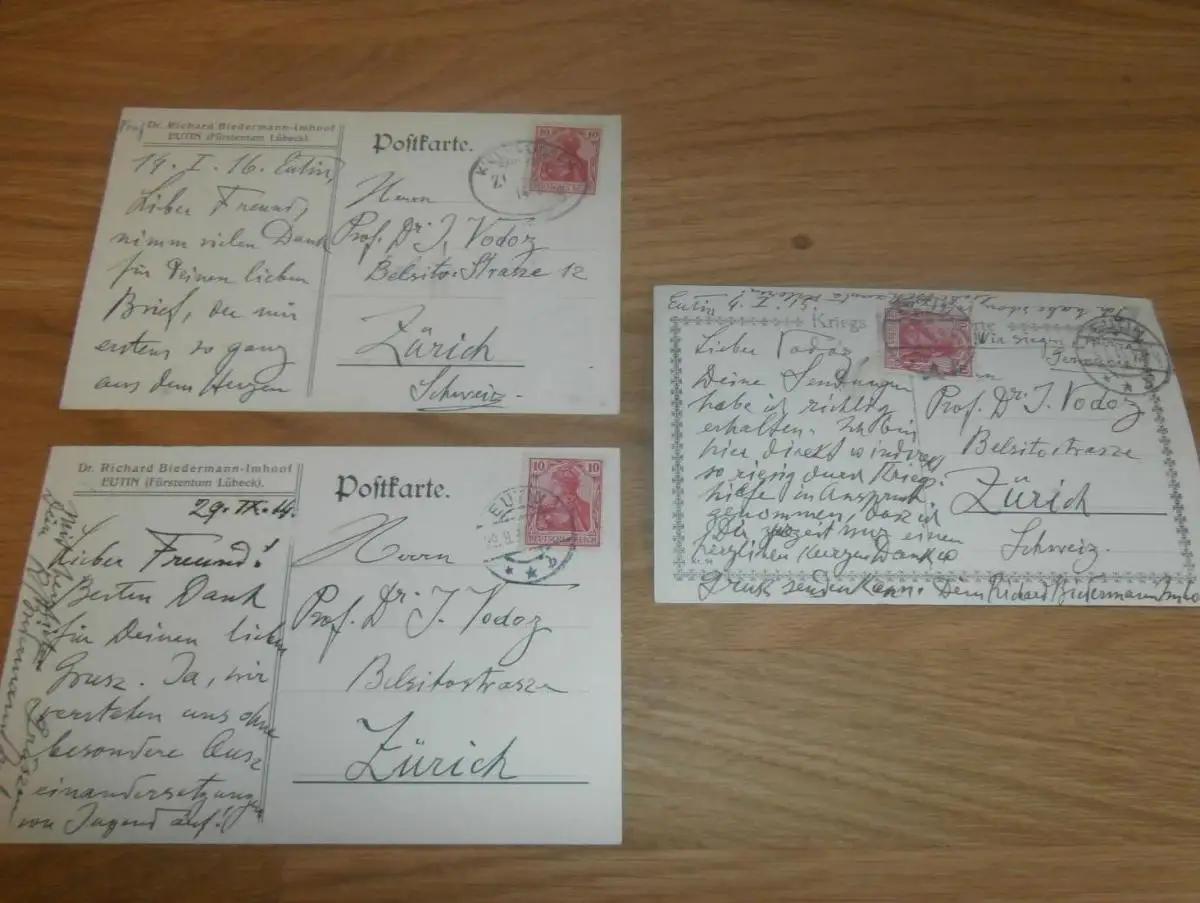 Prof. Dr. Richard Biedermann-Imhoof
EUTIN (Fürstentum Lübeck).
19. I. 16. Eutin,
Lieber Freund,
nimm vielen Dank
für Deinen lieben
Brief, der mir
erstens so ganz
aus dem Herzen
Postkarte.
10 10
DEUTSCHES REICH
Herrn
Prof. Dr. J. Vodoz
Belsito-Strasse 12
Zürich
Schweiz.
Dr. Richard Biedermann-Imhoof
EUTIN (Fürstentum Lübeck).
29. IX. 14.
Lieber Freund!
Besten Dank
für Deinen lieben
Grusz. Ja, wir
verstehen uns ohne
besondere Ausz
einandersetzungen
von Jugend auf!
Postkarte.
10 10
DEUTSCHES REICH
EUTIN
Herrn
Prof. Dr. J. Vodoz
Belsitostrasze
Zürich
Eutin
Kriegs
Lieber Vodoz,
Deine Sendungen
habe ich richtig
erhalten. Ich bin
hier direkt u. indirekt
so riesig durch Kriegs-
hilfe in Anspruch
genommen, dasz ich
Dir zurzeit nur einen
herzlichen kurzen Dank
Grusz senden kann. Dein Richard Biedermann Imhoof
EUTIN
Via Singen
Prof. Dr. J. Vodoz
Belsitostrasse
Zürich
Schweiz.